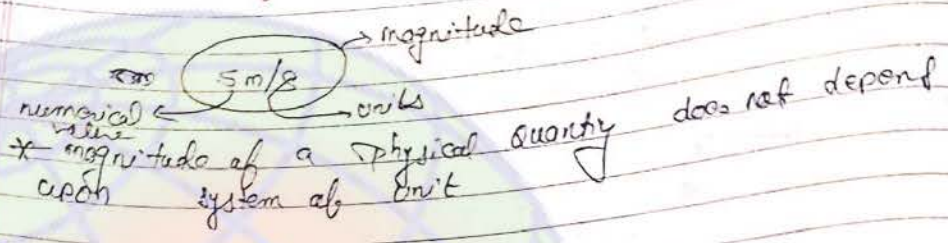 magnitude
5 m/s
numerical value
units
* magnitude of a physical quantity does not depend
upon system of unit